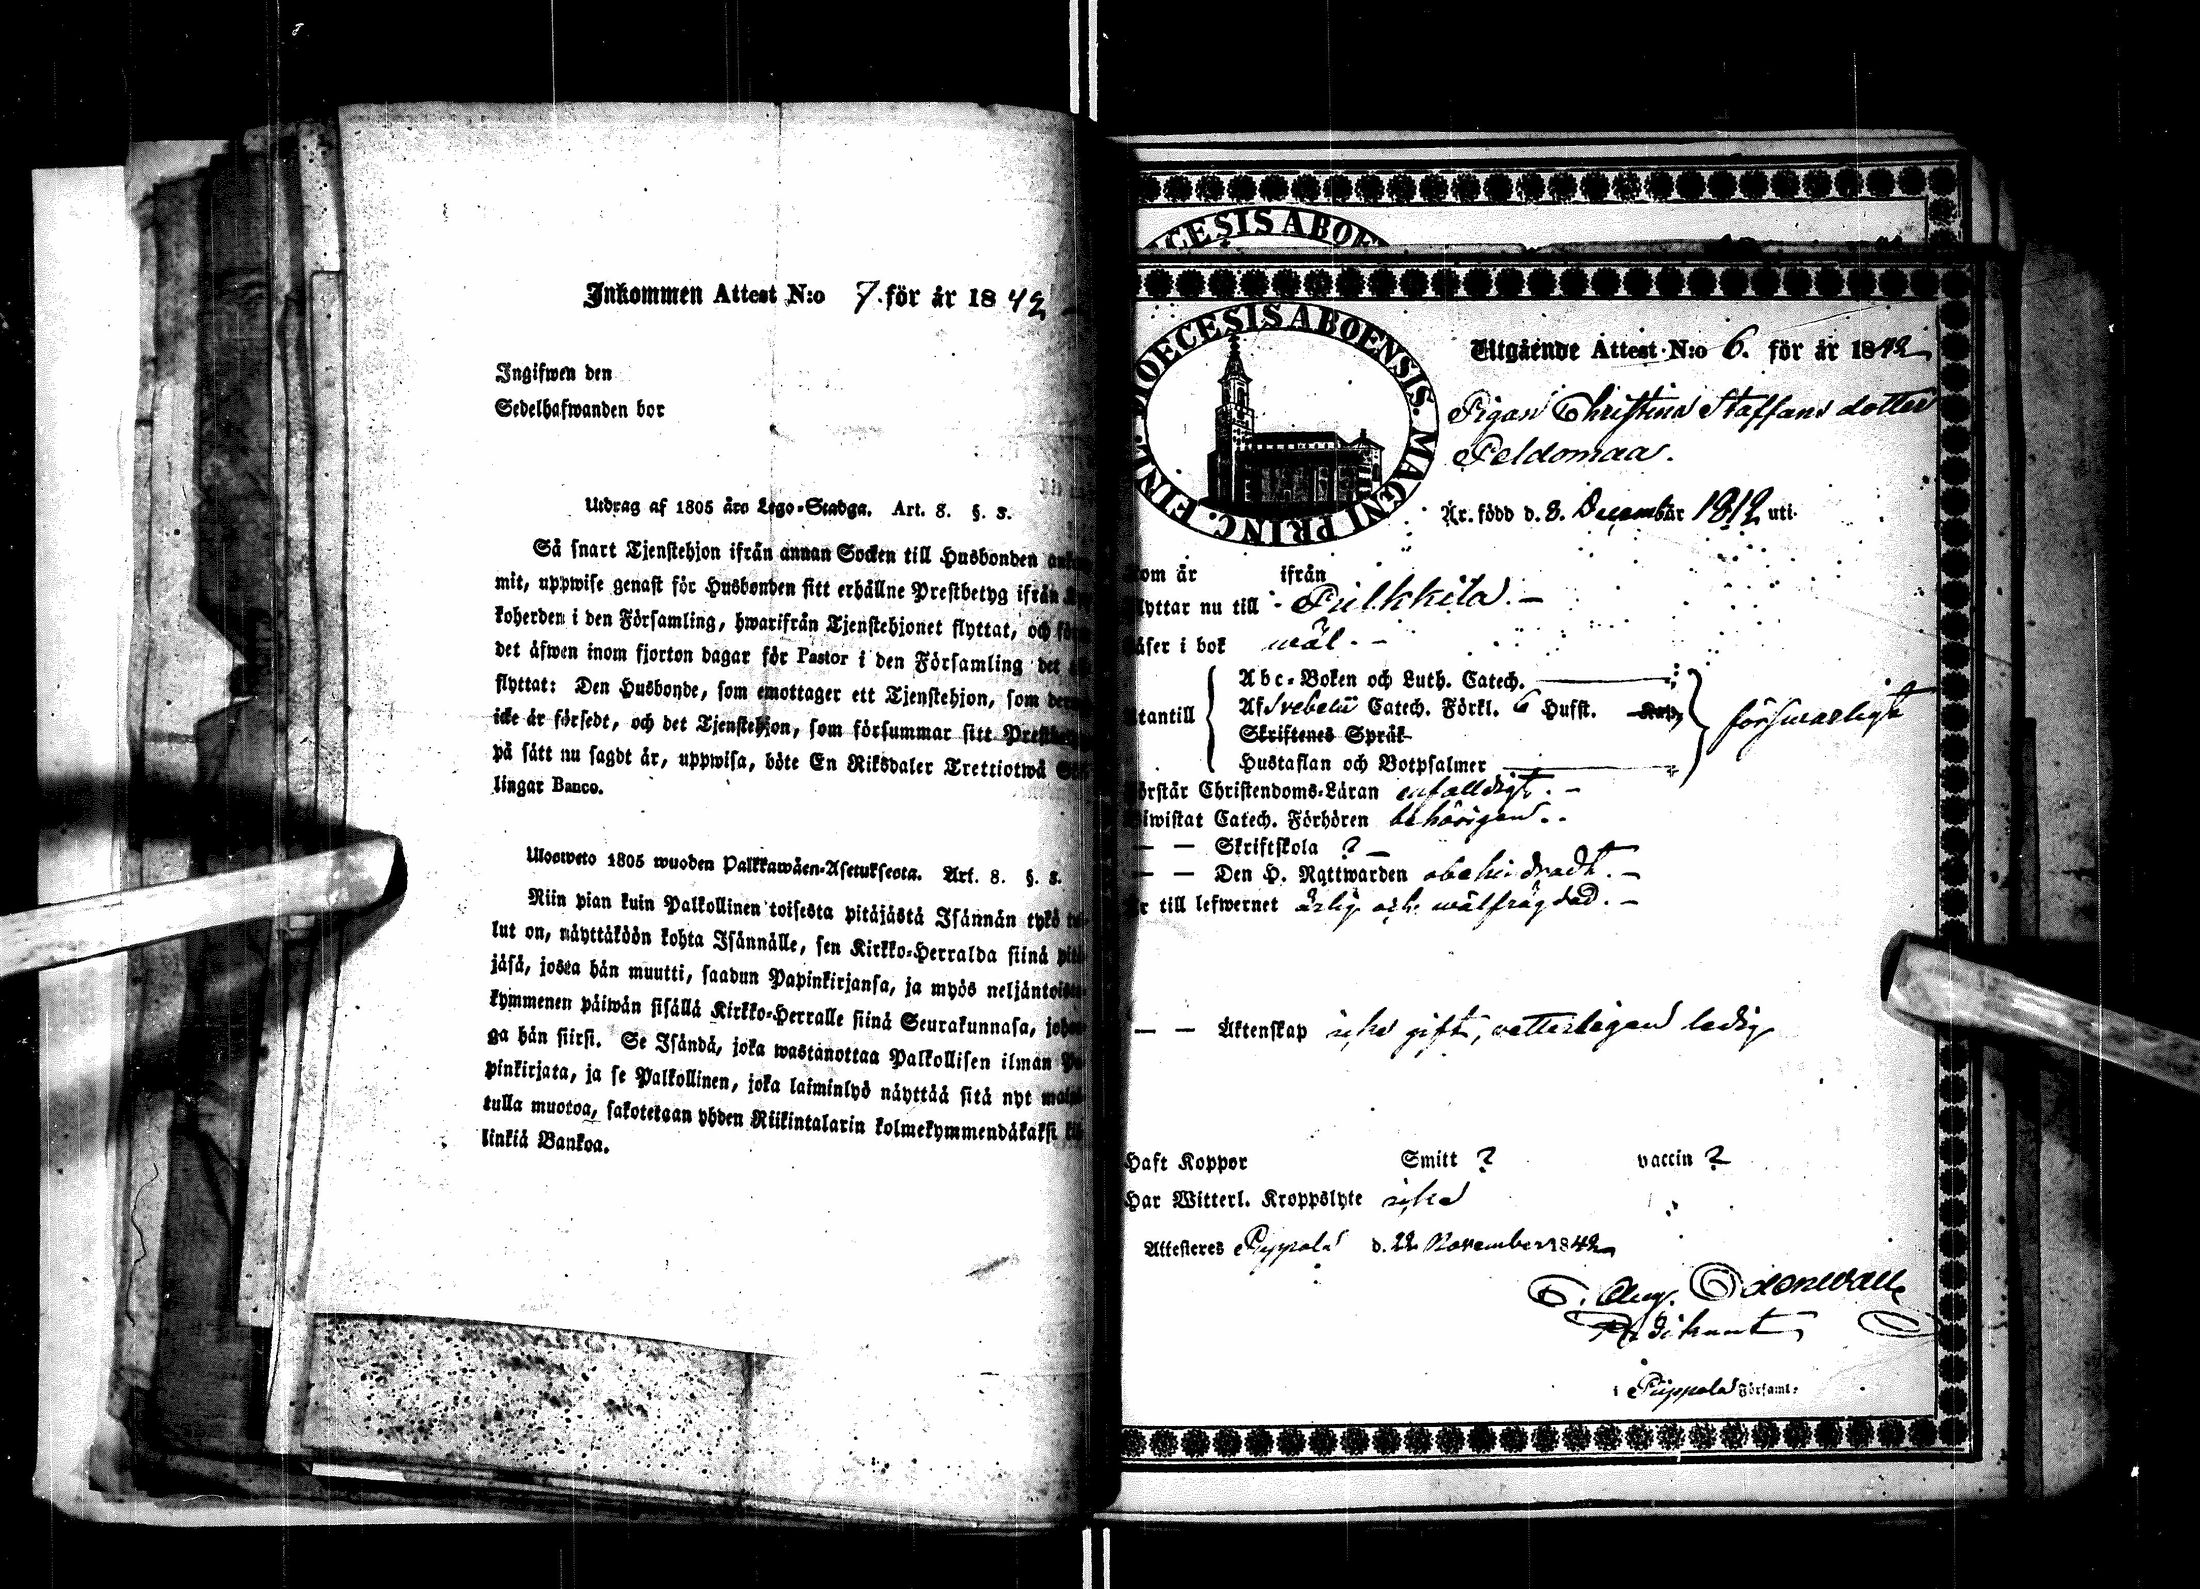 Inkommen Attest N:o 7 för år 1842
Ingifwen den
Sedelhafwanden bor
Utdrag af 1805 års Lego-Stadga. Art. 8. §. 3.
Så snart Tjenstehjon ifrån annan Socken till Husbonden
mit, uppwise genast för Husbonden sitt erhållne Prestbetyg ifrån
koherden i den Församling, hwarifrån Tjenstehjonet flyttat, och
det äfwen inom fjorton dagar för Pastor i den Församling det
flyttat: Den Husbonde, som emottager ett Tjenstehjon, som
icke är försedt, och det Tjenstehjon, som försummar sitt
på sätt nu sagdt är, uppwisa, böte En Riksdaler Trettiotwå
lingar Banco.
Ulosweto 1805 wuoden Palkkawäen-Asetuksesta. Art. 8. §. 3.
Niin pian kuin Palkollinen toisesta pitäjästä Isännän tykö
lut on, näyttäköön kohta Isännälle, sen Kirkko-Herralda siinä
jäsä, josta hän muutti, saadun Papinkirjansa, ja myös
kymmenen päiwän sisällä Kirkko-Herralle siinä Seurakunnasa,
ga hän siirsi. Se Isändä, joka wastanottaa Palkollisen ilman
pinkirjata, ja se Palkollinen, joka laiminlyö näyttää sitä nyt
tulla muotoa, sakotetaan yhden Riikintalarin kolmekymmendäkaksi
linkiä Bankoa.
DIOECESIS ABOENSIS. MAGNI PRINC. FINL.
Utgående Attest N:o 6. för år 1842
Pigan Christina Staffans dotter
Peldomaa.
Är född d. 8. December 1812 uti
som är ifrån
flyttar nu till Pulkkila. -
Läser i bok wäl. -
Utantill
Abc-Boken och Luth. Catech.
Af Svebelii Catech. Förkl. 6 Husst.
Skriftenes Språk
Hustaflan och Botpsalmer
försvarligt
Förstår Christendoms-Läran enfaldigt. -
Biwistat Catech. Förhören behörigen. -
— — Skriftskola ? -
— — Den H. Nattwarden obehindradt. -
Är till lefwernet ärlig och wälfrägdad. -
— — Äktenskap icke gift, vetterligen ledig
Haft Koppor Smitt ? vaccin ?
Har Witterl. Kroppslyte icke
Attesteras Piippola d. 22 November 1842
Odenwall
Predikant
i Piippola Församl.